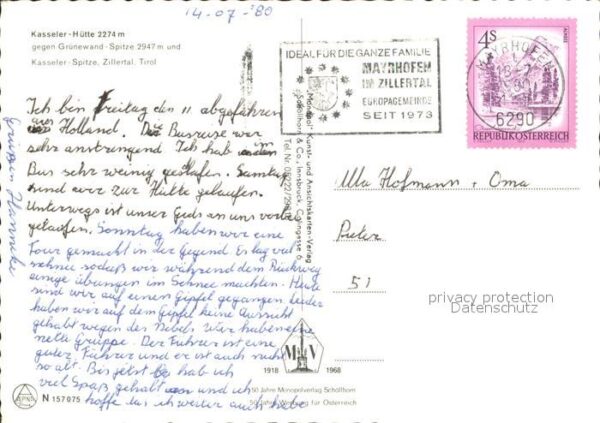 14-07-'80
Kasseler-Hütte 2274 m
gegen Grünewand-Spitze 2947 m und
Kasseler-Spitze, Zillertal, Tirol
IDEAL FÜR DIE GANZE FAMILIE
MAYRHOFEN
IM ZILLERTAL
EUROPAGEMEINDE
SEIT 1973
4S
REPUBLIK ÖSTERREICH
MAYRHOFEN
6290
Ich bin Freitag den 11 abgefahren
aus Holland. Die Busreise war
sehr anstrengend Ich hab im
Bus sehr wenig geslafen. Samstag
sind wir zur Hütte gelaufen.
Unterwegs ist unser Gids an uns vorbei
gelaufen. Sonntag haben wir eine
Tour gemacht in der Gegend. Es lag viel
schnee sodaß wir während dem Rückweg
einige übungen im Schnee machten. Heute
sind wir auf einen Gipfel gegangen leider
haben wir auf dem Gipfel keine Aussicht
gehabt wegen des Nebels. Wir haben eine
nette Gruppe. Der Führer ist eine
guter Führer und er ist auch nicht
so alt. Bis jetzt hab ich
viel Spaß gehabt und ich
hoffe das ich weiter auch habe
Ulla Hofmann + Oma
51
privacy protection
Datenschutz
"Monopol" Kunst- und Ansichtskarten-Verlag
Schöllhorn & Co., Innsbruck
M V
1918 1968
50 Jahre Monopolverlag Schöllhorn
50 Jahre Werbung für Österreich
N 157075